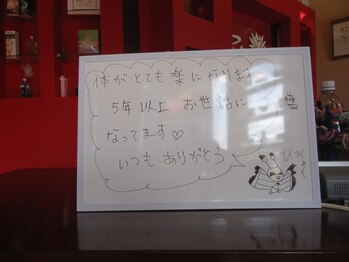 体がとても楽に行ります
5年以上 お世話に
なってます♡
いつもありがとう
びびょん